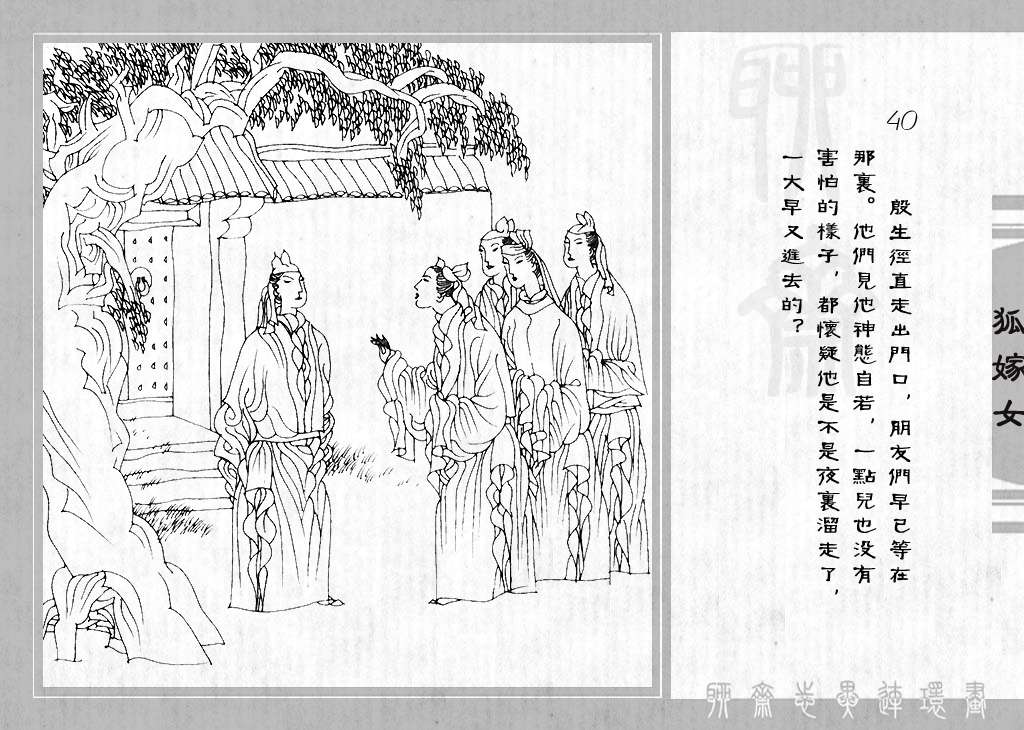 40
殷生徑直走出門口，朋友們早已等在
那裏。他們見他神態自若，一點兒也沒有
害怕的樣子，都懷疑他是不是夜裏溜走了，
一大早又進去的？
狐嫁女
聊齋
聊齋志異連環畫